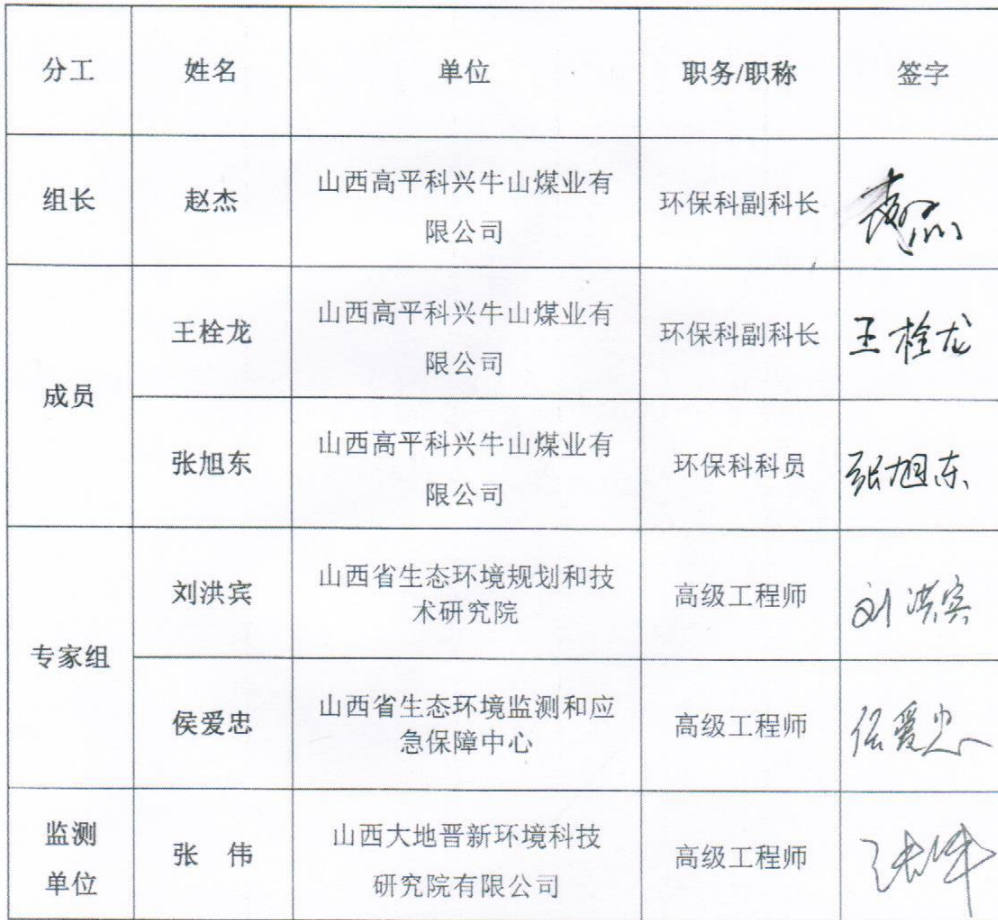 分工 姓名 单位 职务/职称 签字
组长 赵杰 山西高平科兴牛山煤业有
限公司 环保科副科长
成员
王栓龙 山西高平科兴牛山煤业有
限公司 环保科副科长 王栓龙
张旭东 山西高平科兴牛山煤业有
限公司 环保科科员 张旭东
专家组
刘洪宾 山西省生态环境规划和技
术研究院 高级工程师 刘洪宾
侯爱忠 山西省生态环境监测和应
急保障中心 高级工程师 侯爱忠
监测
单位
张 伟 山西大地晋新环境科技
研究院有限公司 高级工程师 张伟